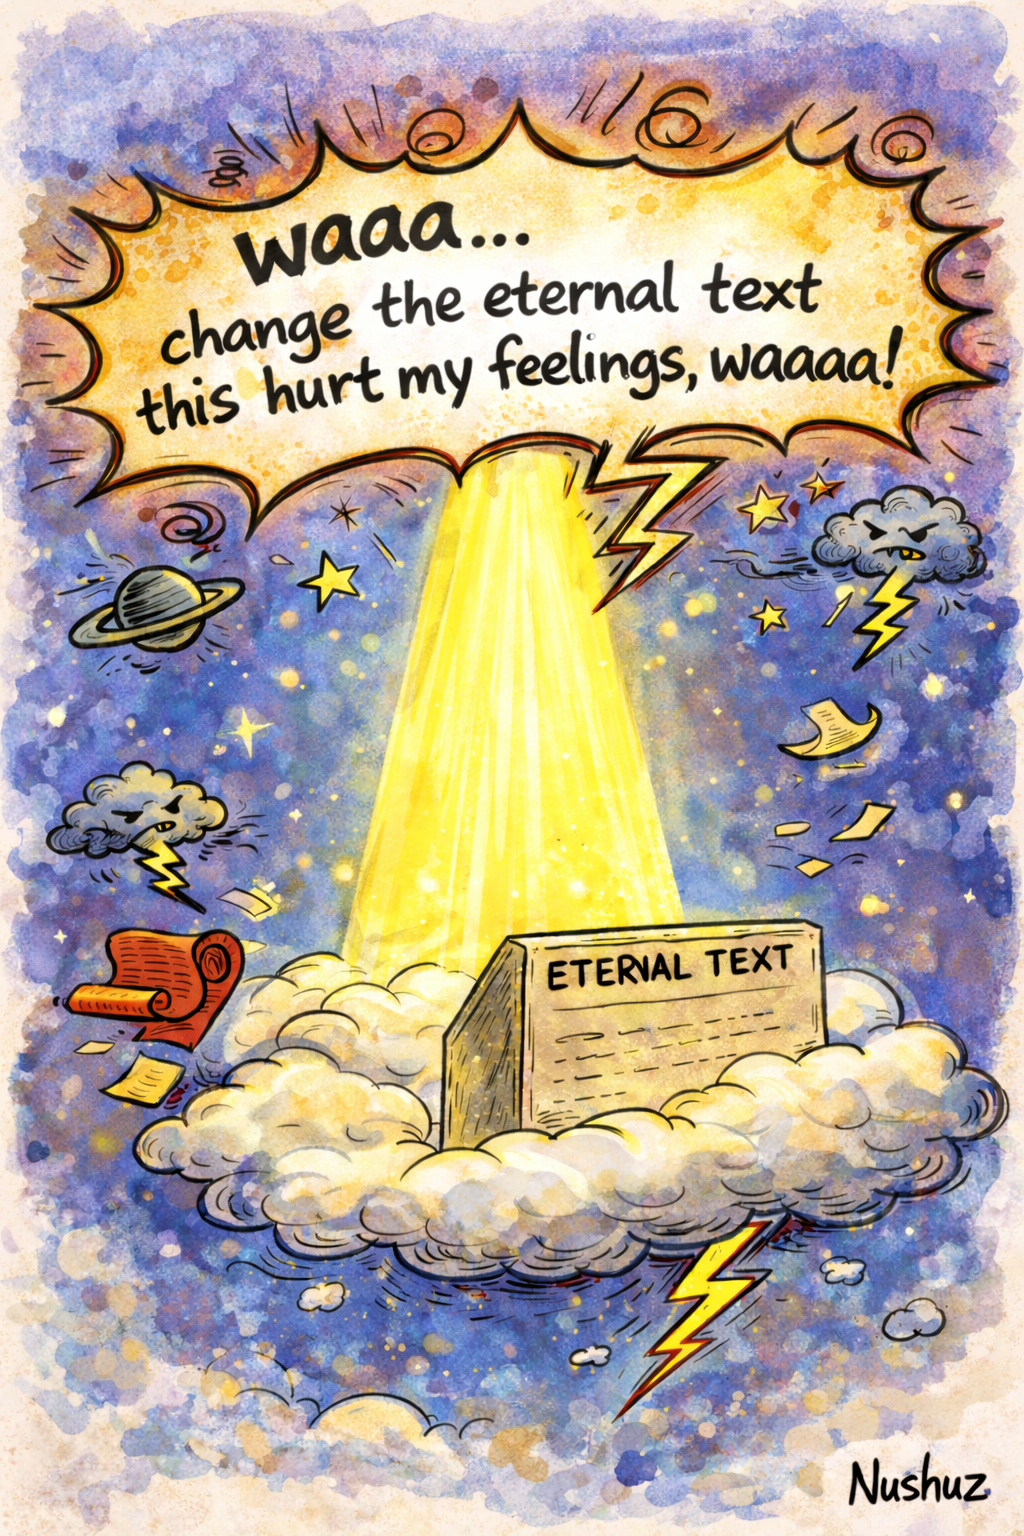 waaa...
change the eternal text
this hurt my feelings, waaaa!
ETERNAL TEXT
Nushuz